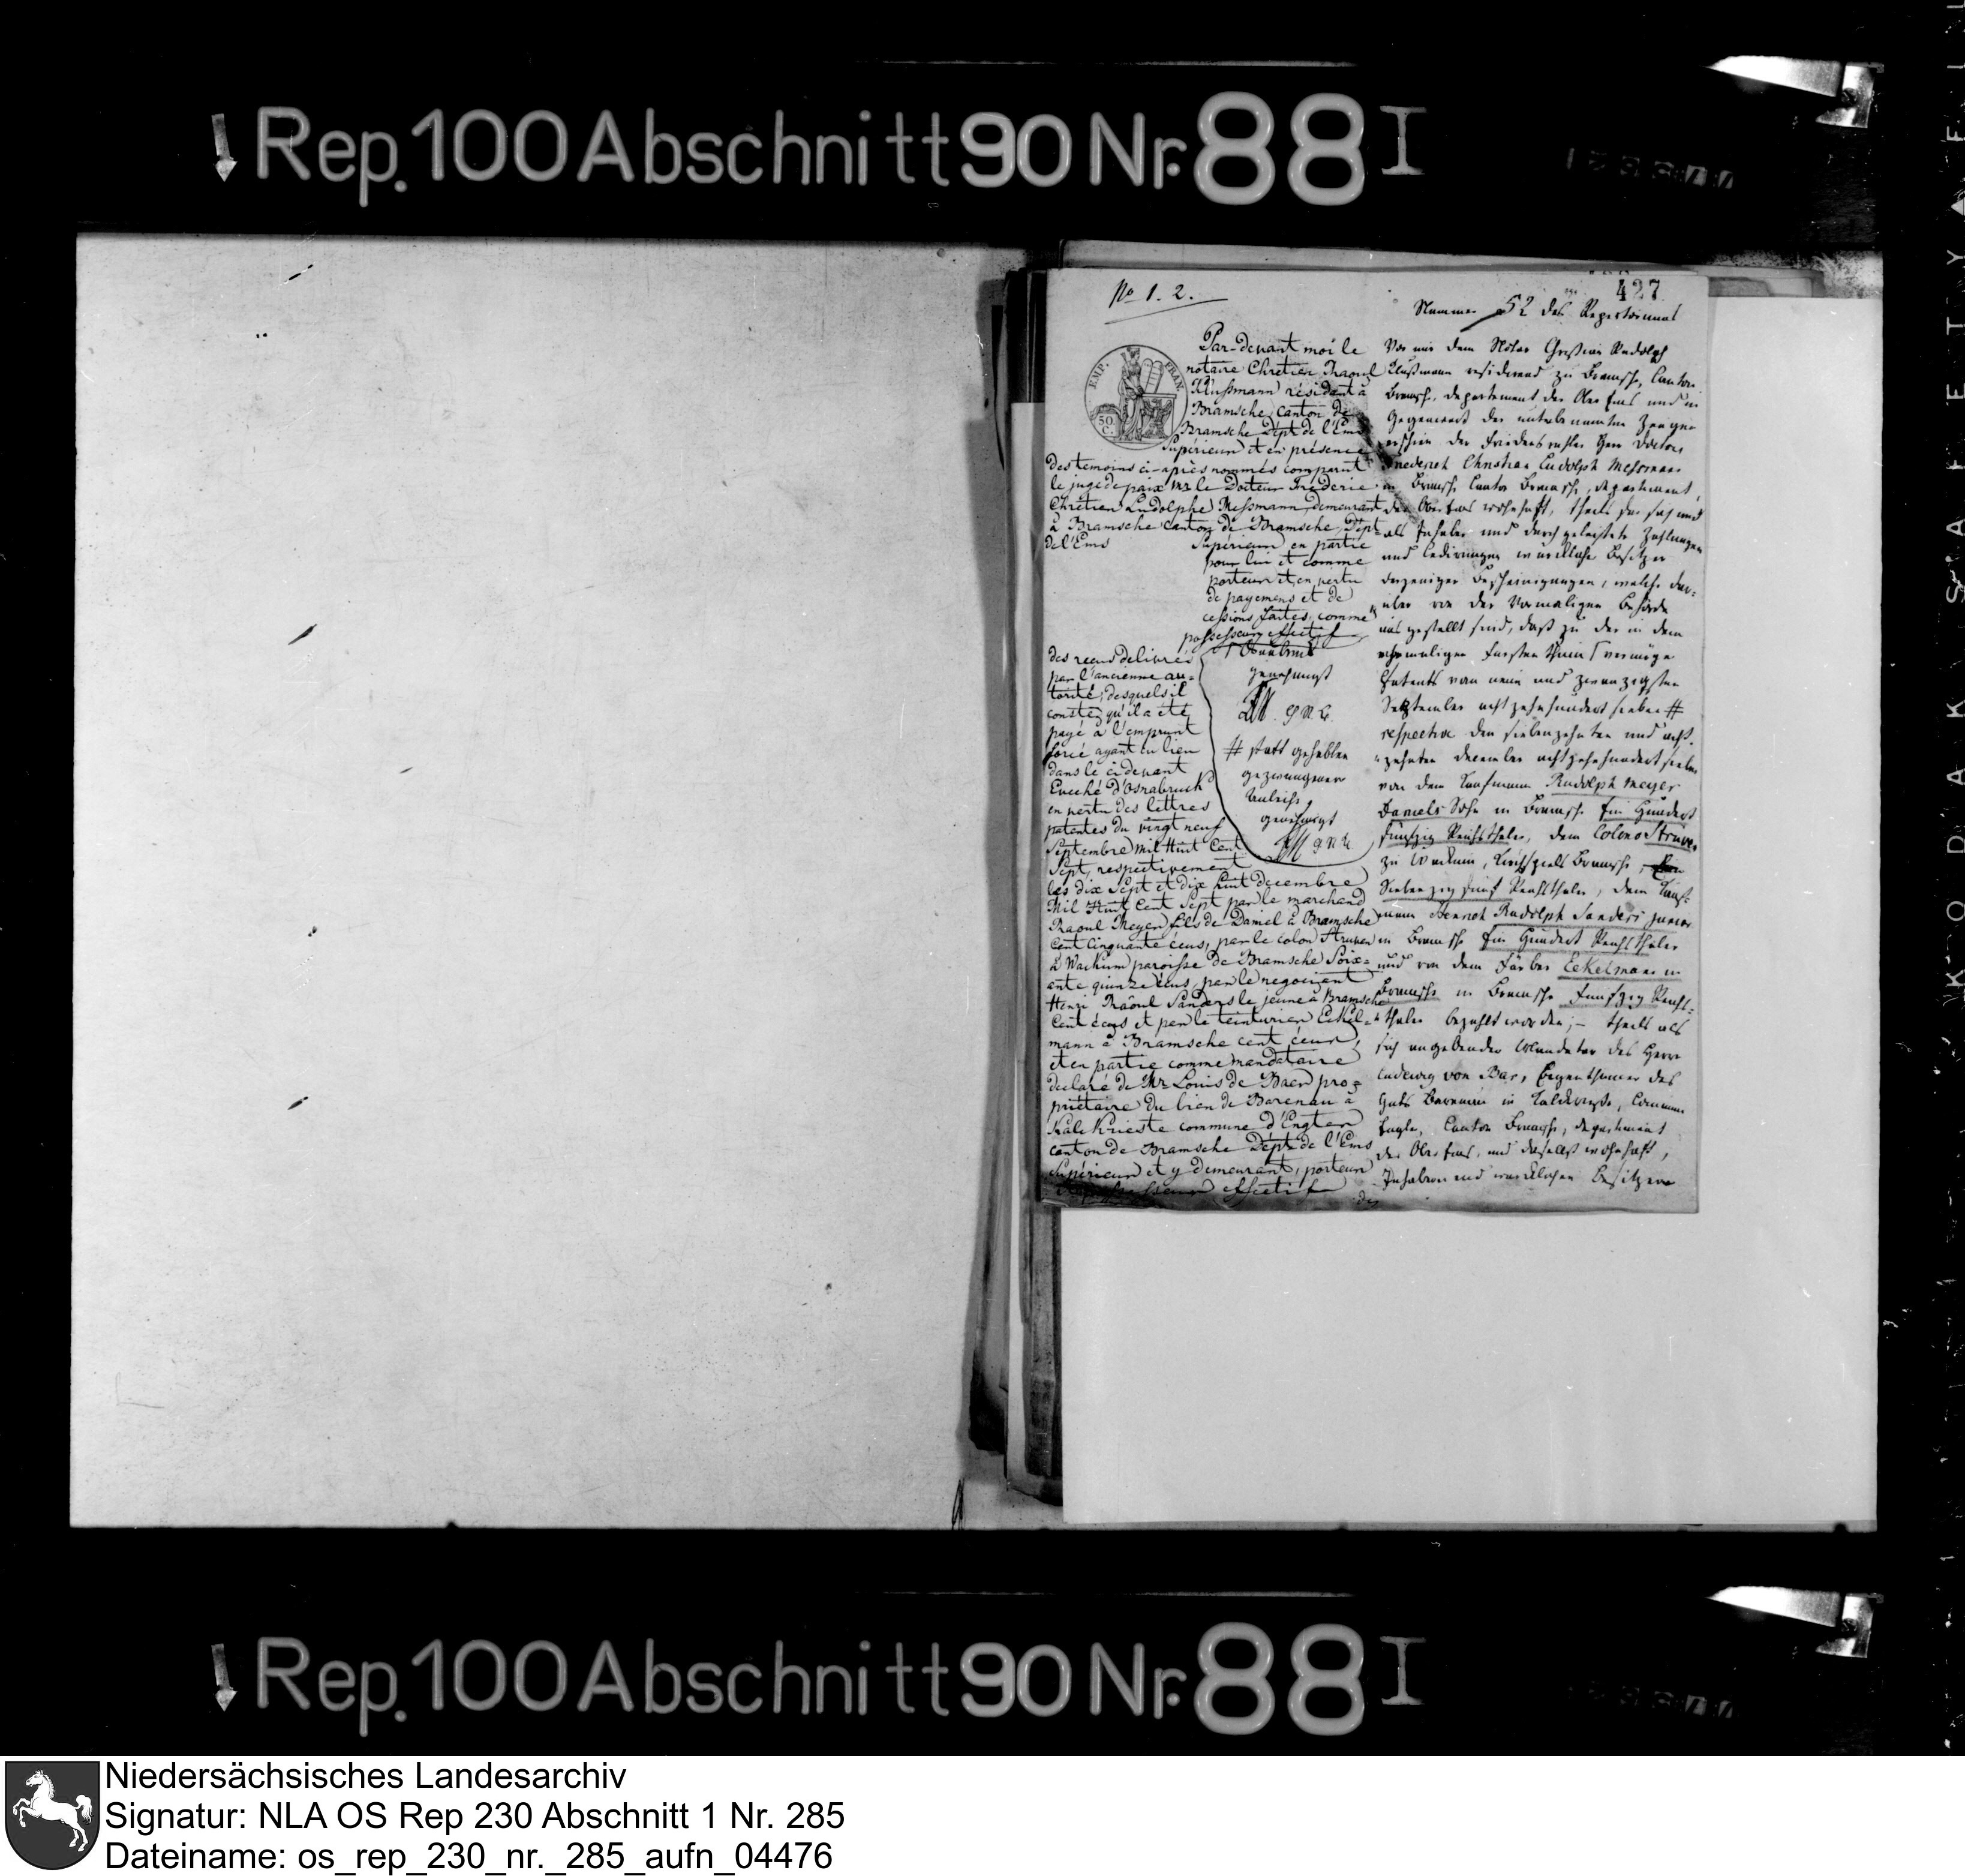 Rep. 100 Abschnitt 90 Nr. 88 I
No 1. 2.
427
Nummer 52 des Repertoriums
EMP. FRAN.
50. C.
Par-devant moi le
notaire Chretien Raoul
Klussmann résident à
Bramsche, canton de
Bramsche Dépt de l'Ems
Supérieur et en présence
des temoins ci-après nommés comparut
le juge de paix Mr le Docteur Frederic
Chrétien Ludolphe Messmann, demeurant
à Bramsche canton de Bramsche, Dépt
de l'Ems Supérieur en partie
pour lui et comme
porteur et, en vertu
de payemens et de
cessions faites, comme
possesseur effectif
des recus delivrés
par l'ancienne au=
torité, desquels il
conste, qu'il a été
payé à l'emprunt
forcé ayant eu lieu
dans le ci devant
Eveché d'Osnabruck
en vertu des lettres
patentes du vingt neuf
Septembre mil Huit Cent
Sept, respectivement
les dix Sept et dix huit decembre
Mil Huit Cent Sept par le marchand
Raoul Meyer fils de Daniel à Bramsche
Cent Cinquante écus, par le colon Struven
à Wackum paroisse de Bramsche Soix=
ante quinze écus, par le negociant
Henri Raoul Sanders le jeune à Bramsche
Cent écus et par le teinturier Eckel=
mann à Bramsche cent écus,
et en partie comme mandataire
declaré de Mr Louis de Baer pro=
priétaire du bien de Barenau à
Kalkrieste commune d'Engter
canton de Bramsche Dépt de l'Ems
Supérieur et y demeurant, porteur
et possesseur effectif
Osnabrück
genehmigt
# statt gehabten
gezwungenen
Anleihe,
genehmigt
Vor mir dem Notar Christian Rudolph
Klussmann residirend zu Bramsche, Canton
Bramsche, Departement der Ober Ems und in
Gegenwart der unten benannten Zeugen
erschien der Friedensrichter Herr Doctor
Friederich Christian Ludolph Messmann
in Bramsche Canton Bramsche, Departement
der Ober Ems wohnhaft, theils für sich und
als Inhaber und durch geleistete Zahlungen
und Cedirungen würcklicher Besitzer
derjenigen Bescheinigungen, welche dar=
über von der Vormaligen Behörde
ausgestellt sind, daß zu der in dem
ehemaligen Fürstenthum vermöge
Patents vom neun und zwanzigsten
September achtzehnhundert sieben #
respective den siebenzehnten und acht=
zehnten December achtzehnhundert sieben
von dem Kaufmann Rudolph Meyer
Daniels Sohn in Bramsche Ein Hundert
Fünfzig Reichsthaler, dem Colono Struve
zu Wackum, Kirchspiels Bramsche,
Siebenzig fünf Reichsthaler, dem Kauf=
mann Henrich Rudolph Sanders junior
in Bramsche Ein Hundert Reichsthaler
und von dem Färber Eckelmann in
Bramsche in Bramsche Funfzig Reichs=
thaler bezahlt worden; – theils als
sich angebender Mandatar des Herrn
Ludewig von Bar, Eigenthümer des
Guts Barenau in Kalckriese, Commune
Engter, Canton Bramsche, Departement
der Ober Ems, und daselbst wohnhaft,
Inhabern und würcklichen Besitzern
Rep. 100 Abschnitt 90 Nr. 88 I
Niedersächsisches Landesarchiv
Signatur: NLA OS Rep 230 Abschnitt 1 Nr. 285
Dateiname: os_rep_230_nr._285_aufn_04476